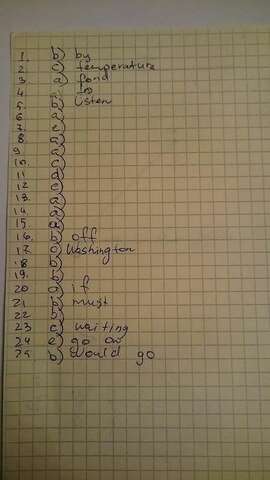 1. b) by
2 c) temperature
3. a) fond
4. b) to
5. b) listen
6 a)
7. c)
8 a)
9. a)
10. c)
11 d)
12 c)
13. a)
14. a)
15. a)
16. b) off
17. c) Washington
18 b)
19. b)
20 a) if
21. b) must
22 b)
23 c) waiting
24 e) go on
25 b) would go